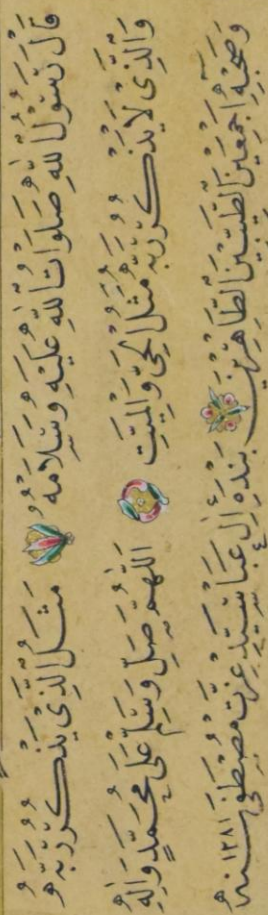 قَالَ رَسُولُ اللهِ صَلَوَاتُ اللهِ عَلَيْهِ وَسَلَامُهُ مَثَلُ الَّذِي يَذْكُرُ رَبَّهُ
وَالَّذِي لَا يَذْكُرُ رَبَّهُ مَثَلُ الْحَيِّ وَالْمَيِّتِ اَللّٰهُمَّ صَلِّ وَسَلِّمْ عَلَى مُحَمَّدٍ وَآلِهِ
وَصَحْبِهِ اَجْمَعِينَ الطَّيِّبِينَ الطَّاهِرِينَ بندهٔ آل عبا سيد عزت مصطفى سنه ١٢٨١